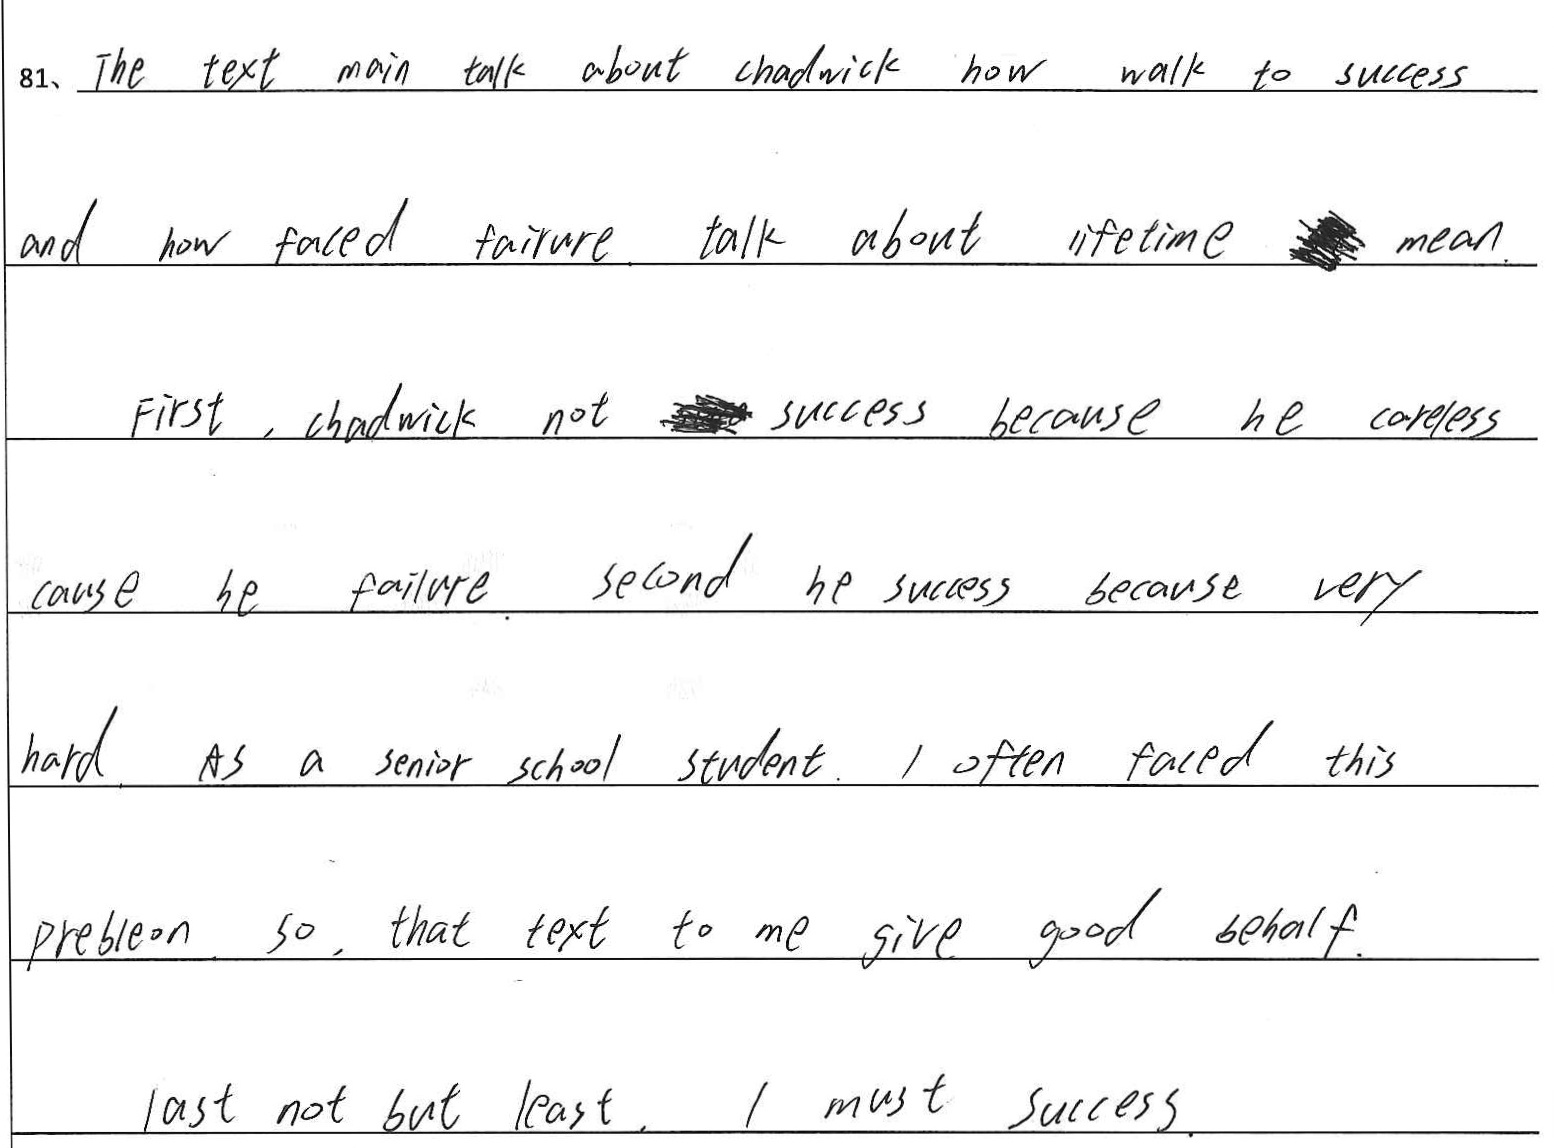 81、The text main talk about chadwick how walk to success
and how faced failure. talk about lifetime mean.
First, chadwick not success because he careless
cause he failure. second he success because very
hard. As a senior school student. I often faced this
prebleon. so, that text to me give good behalf.
last not but least, I must success.